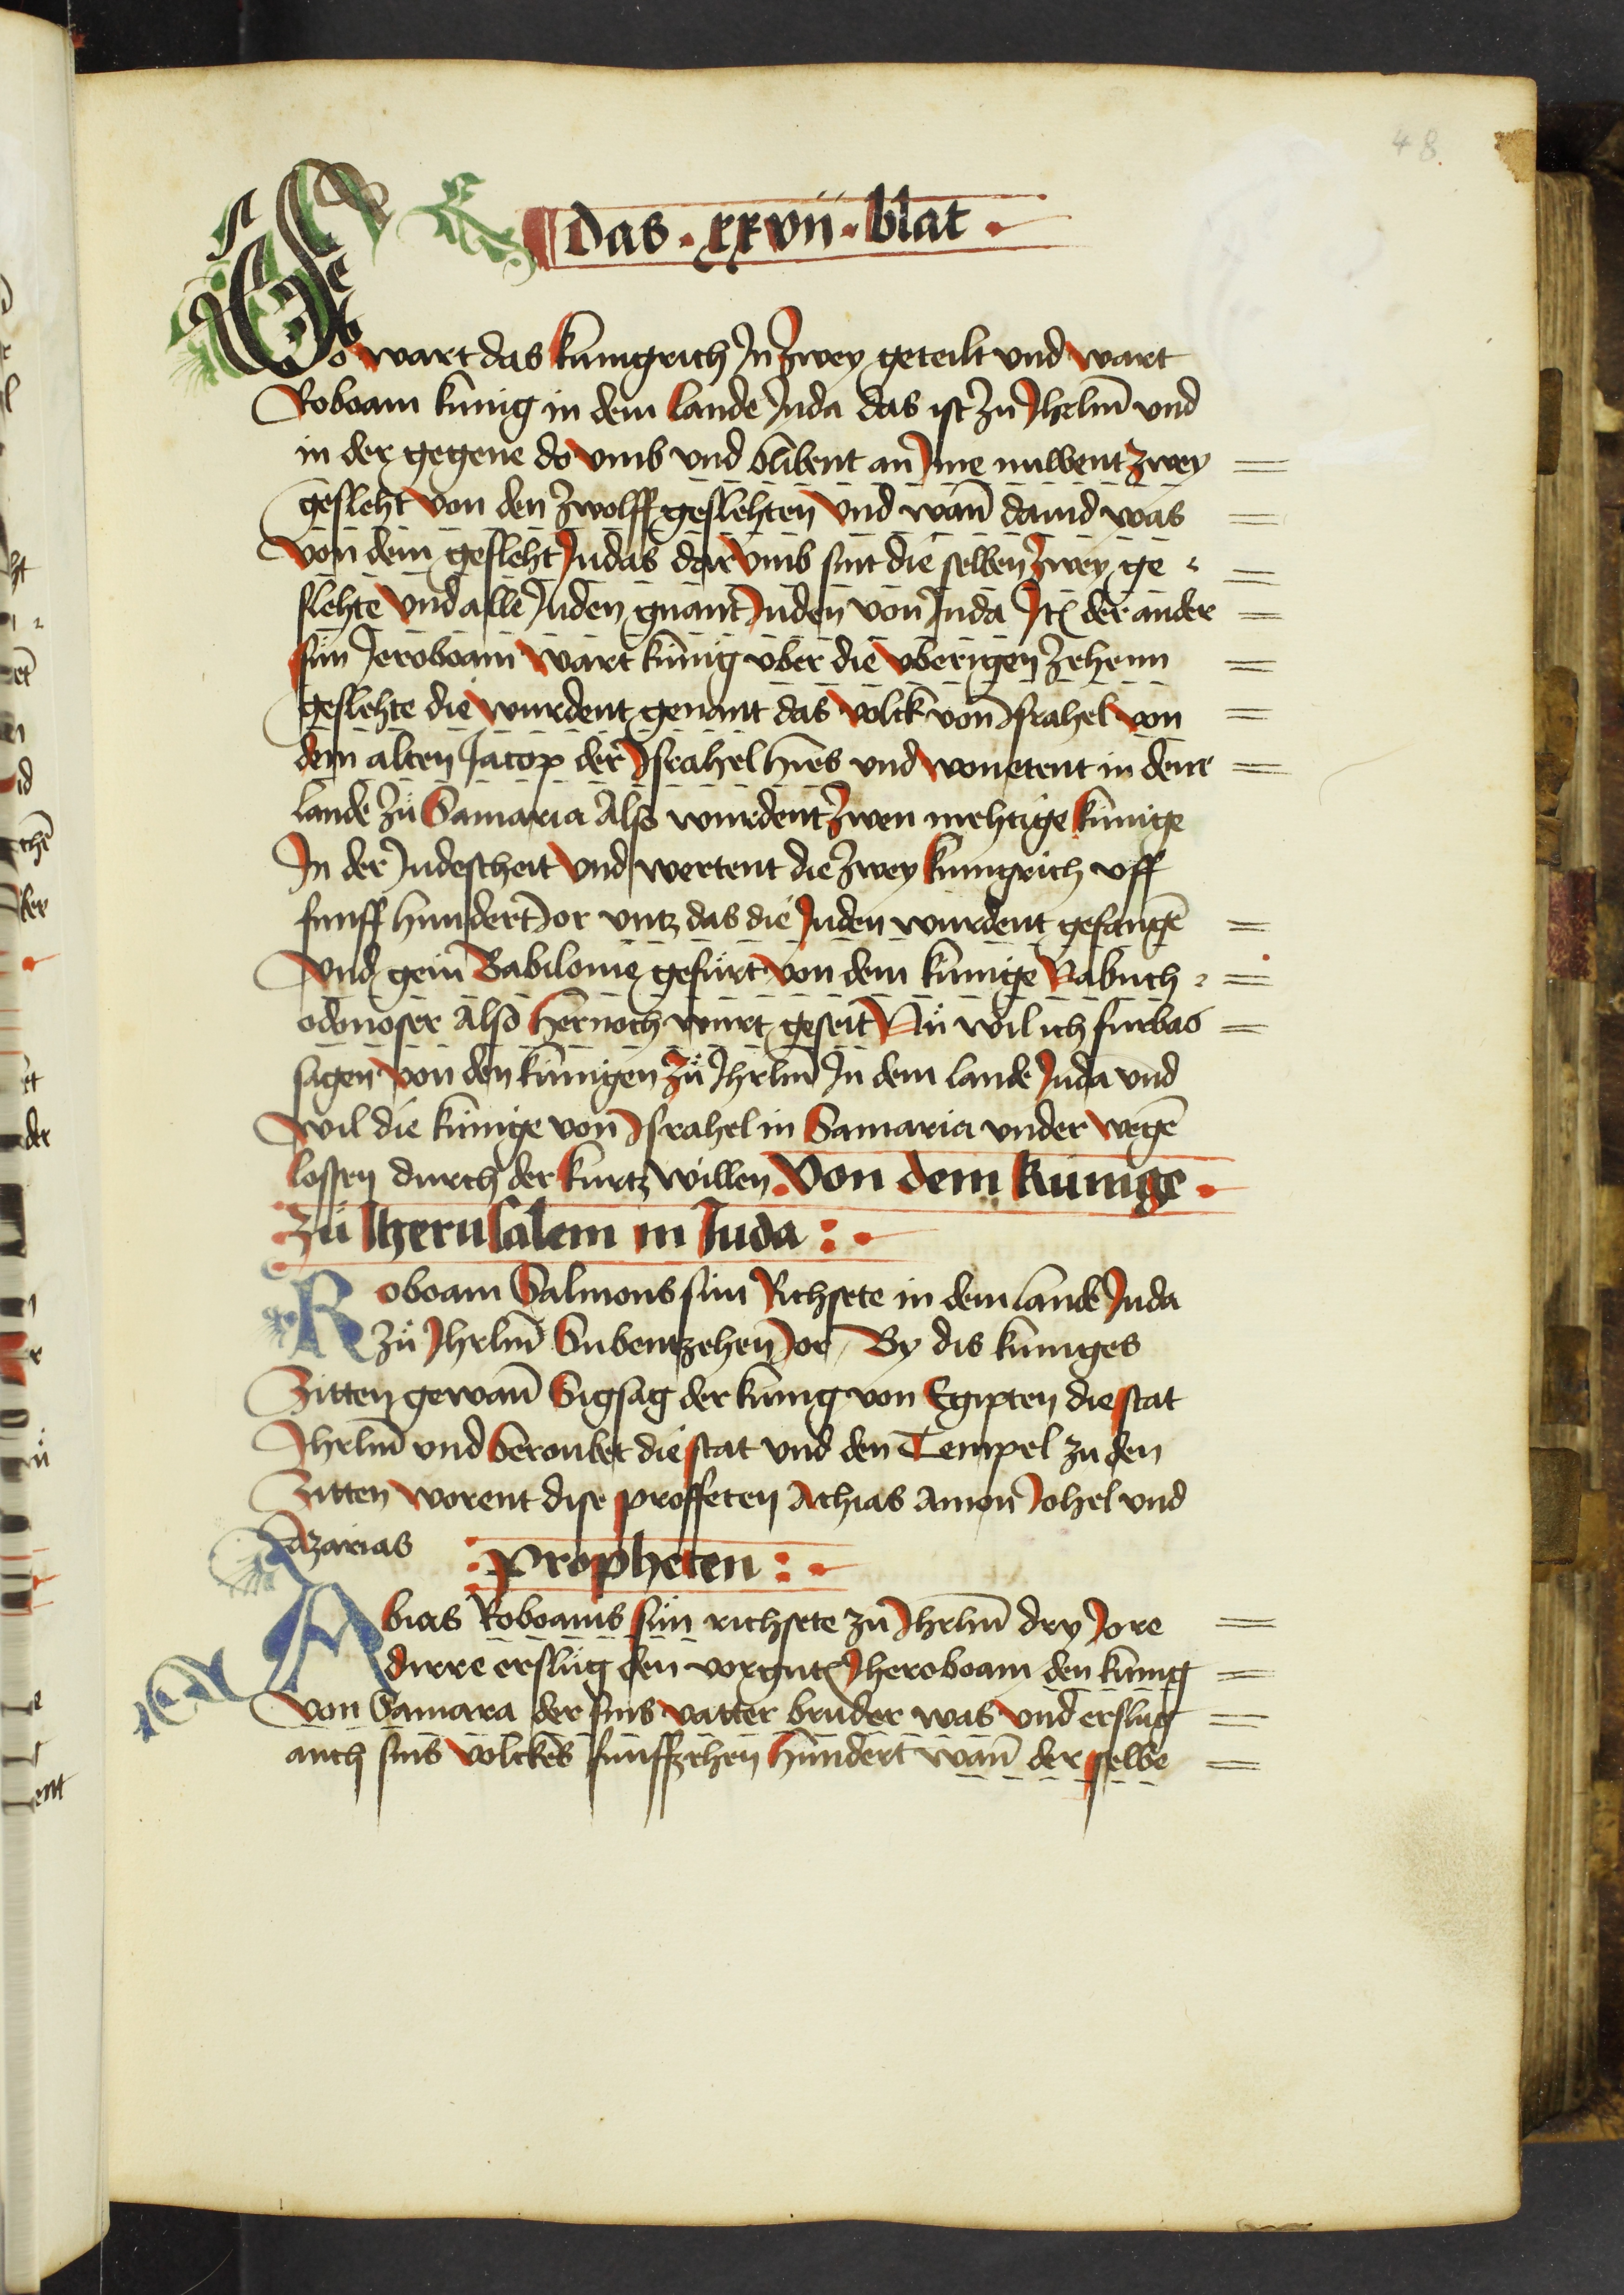 48
Das · xxvii · blat ·
So wart das kunigrich In Zwey geteilt vnd wart
Roboam kunig in dem lande Juda das ist Zu Jhrlm̄ vnd
in der gegene do vmb vnd blibent an Jme nuwent zwey
geslecht von den Zwolff geslehten vnd wan̄ dauid was
von dem gesleht Judas dar vmb sint die selben Zwey ge
slehte vnd alle Juden gnant Juden von Juda Jtꝫ der ander
sün Jeroboam wart kunig vber die vberigen Zehenn
geslehte die wurdent genant das volck von Jsrahel von
dem alten Jacop der Jsrahel hies vnd wonetent in deme
lande Zu̍ Samaria Also wurdent Zwen mehtige kunige
In der Judescheit vnd wertent die Zwey kunigrich vff
funff hundert Jor vntz das die Juden wurdent gefangē
vnd gein Babilonie gefürt von dem kunige Nabuch
odonoser Also hernoch wurt geseit Nu̍ wil ich furbas
sagen von den kunigen Zu̍ Jhrlm̄ In dem lande Juda vnd
wil die kunige von Jsrahel in Samaria vnder wegē
lossen durch der kurtz willen Von dem kunige ·
Zu Iherusalem in Iuda : ·
Roboam Salmons sun Richsete in dem lande Juda
Zu̍ Jhrlm̄ Subentzehen Jor By dis kuniges
Zitten gewan̄ Sigsag der kunig von Egipten die stat
Jhrlm̄ vnd beroubet die stat vnd den Tempel zu den
Zitten worent dise proffeten Achias Amon Johel vnd
Azarias : Propheten : ·
Abias Roboams sün richsete zu Jhrlm̄ dry Jore
dirre erslüg den vorgntꝫ Jheroboam den kunig
von Samara der sins vatter bruder was vnd erslug
auch sins volckes funffzehen hundert wan̄ der selbe